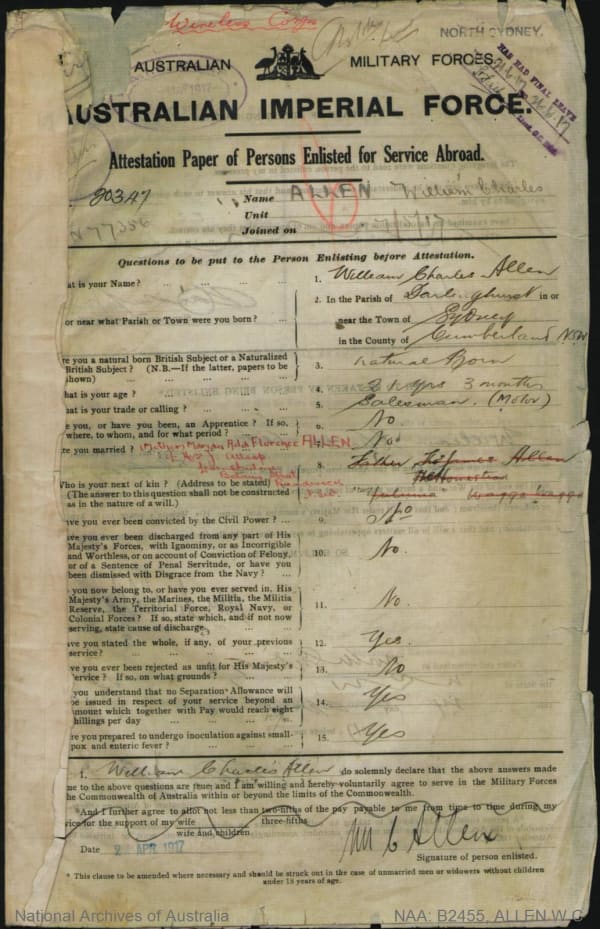 Wireless Corps
NORTH SYDNEY.
AUSTRALIAN MILITARY FORCES.
HAS HAD FINAL LEAVE
AUSTRALIAN IMPERIAL FORCE.
Attestation Paper of Persons Enlisted for Service Abroad.
20347
Name ALLEN William Charles
N77356
Unit
Joined on
Questions to be put to the Person Enlisting before Attestation.
at is your Name? ... ... ... 1. William Charles Allen
or near what Parish or Town were you born? ... 2. In the Parish of Darlinghurst in or
near the Town of Sydney
in the County of Cumberland NSW
re you a natural born British Subject or a Naturalized
British Subject? (N.B.—If the latter, papers to be
shown) 3. Natural Born
at is your age? ... 4. 3 months
at is your trade or calling? ... 5. Salesman. (Motor)
e you, or have you been, an Apprentice? If so,
where, to whom, and for what period? ... 6. No
re you married? 7. No
Florence ALLEN
Who is your next of kin? (Address to be stated) 8. Father Allen
(The answer to this question shall not be construed
as in the nature of a will.) Wagga Wagga
ave you ever been convicted by the Civil Power? ... 9. No
ave you ever been discharged from any part of His
Majesty's Forces, with Ignominy, or as Incorrigible
and Worthless, or on account of Conviction of Felony,
or of a Sentence of Penal Servitude, or have you
been dismissed with Disgrace from the Navy? ... 10. No.
you now belong to, or have you ever served in, His
Majesty's Army, the Marines, the Militia, the Militia
Reserve, the Territorial Force, Royal Navy, or
Colonial Forces? If so, state which, and if not now
serving, state cause of discharge 11. No.
ave you stated the whole, if any, of your previous
service? 12. Yes.
ve you ever been rejected as unfit for His Majesty's
ervice? If so, on what grounds? ... 13. No
you understand that no Separation Allowance will
be issued in respect of your service beyond an
amount which together with Pay would reach eight
shillings per day ... 14. Yes
re you prepared to undergo inoculation against small-
pox and enteric fever? ... 15. Yes
I, William Charles Allen do solemnly declare that the above answers made
me to the above questions are true, and I am willing and hereby voluntarily agree to serve in the Military Forces
the Commonwealth of Australia within or beyond the limits of the Commonwealth.
*And I further agree to allot not less than two-fifths of the pay payable to me from time to time during my
vice for the support of my wife three-fifths
wife and children
Date 2 APR 1917
Wm C Allen
Signature of person enlisted.
* This clause to be amended where necessary and should be struck out in the case of unmarried men or widowers without children
under 18 years of age.
National Archives of Australia
NAA: B2455, ALLEN W C